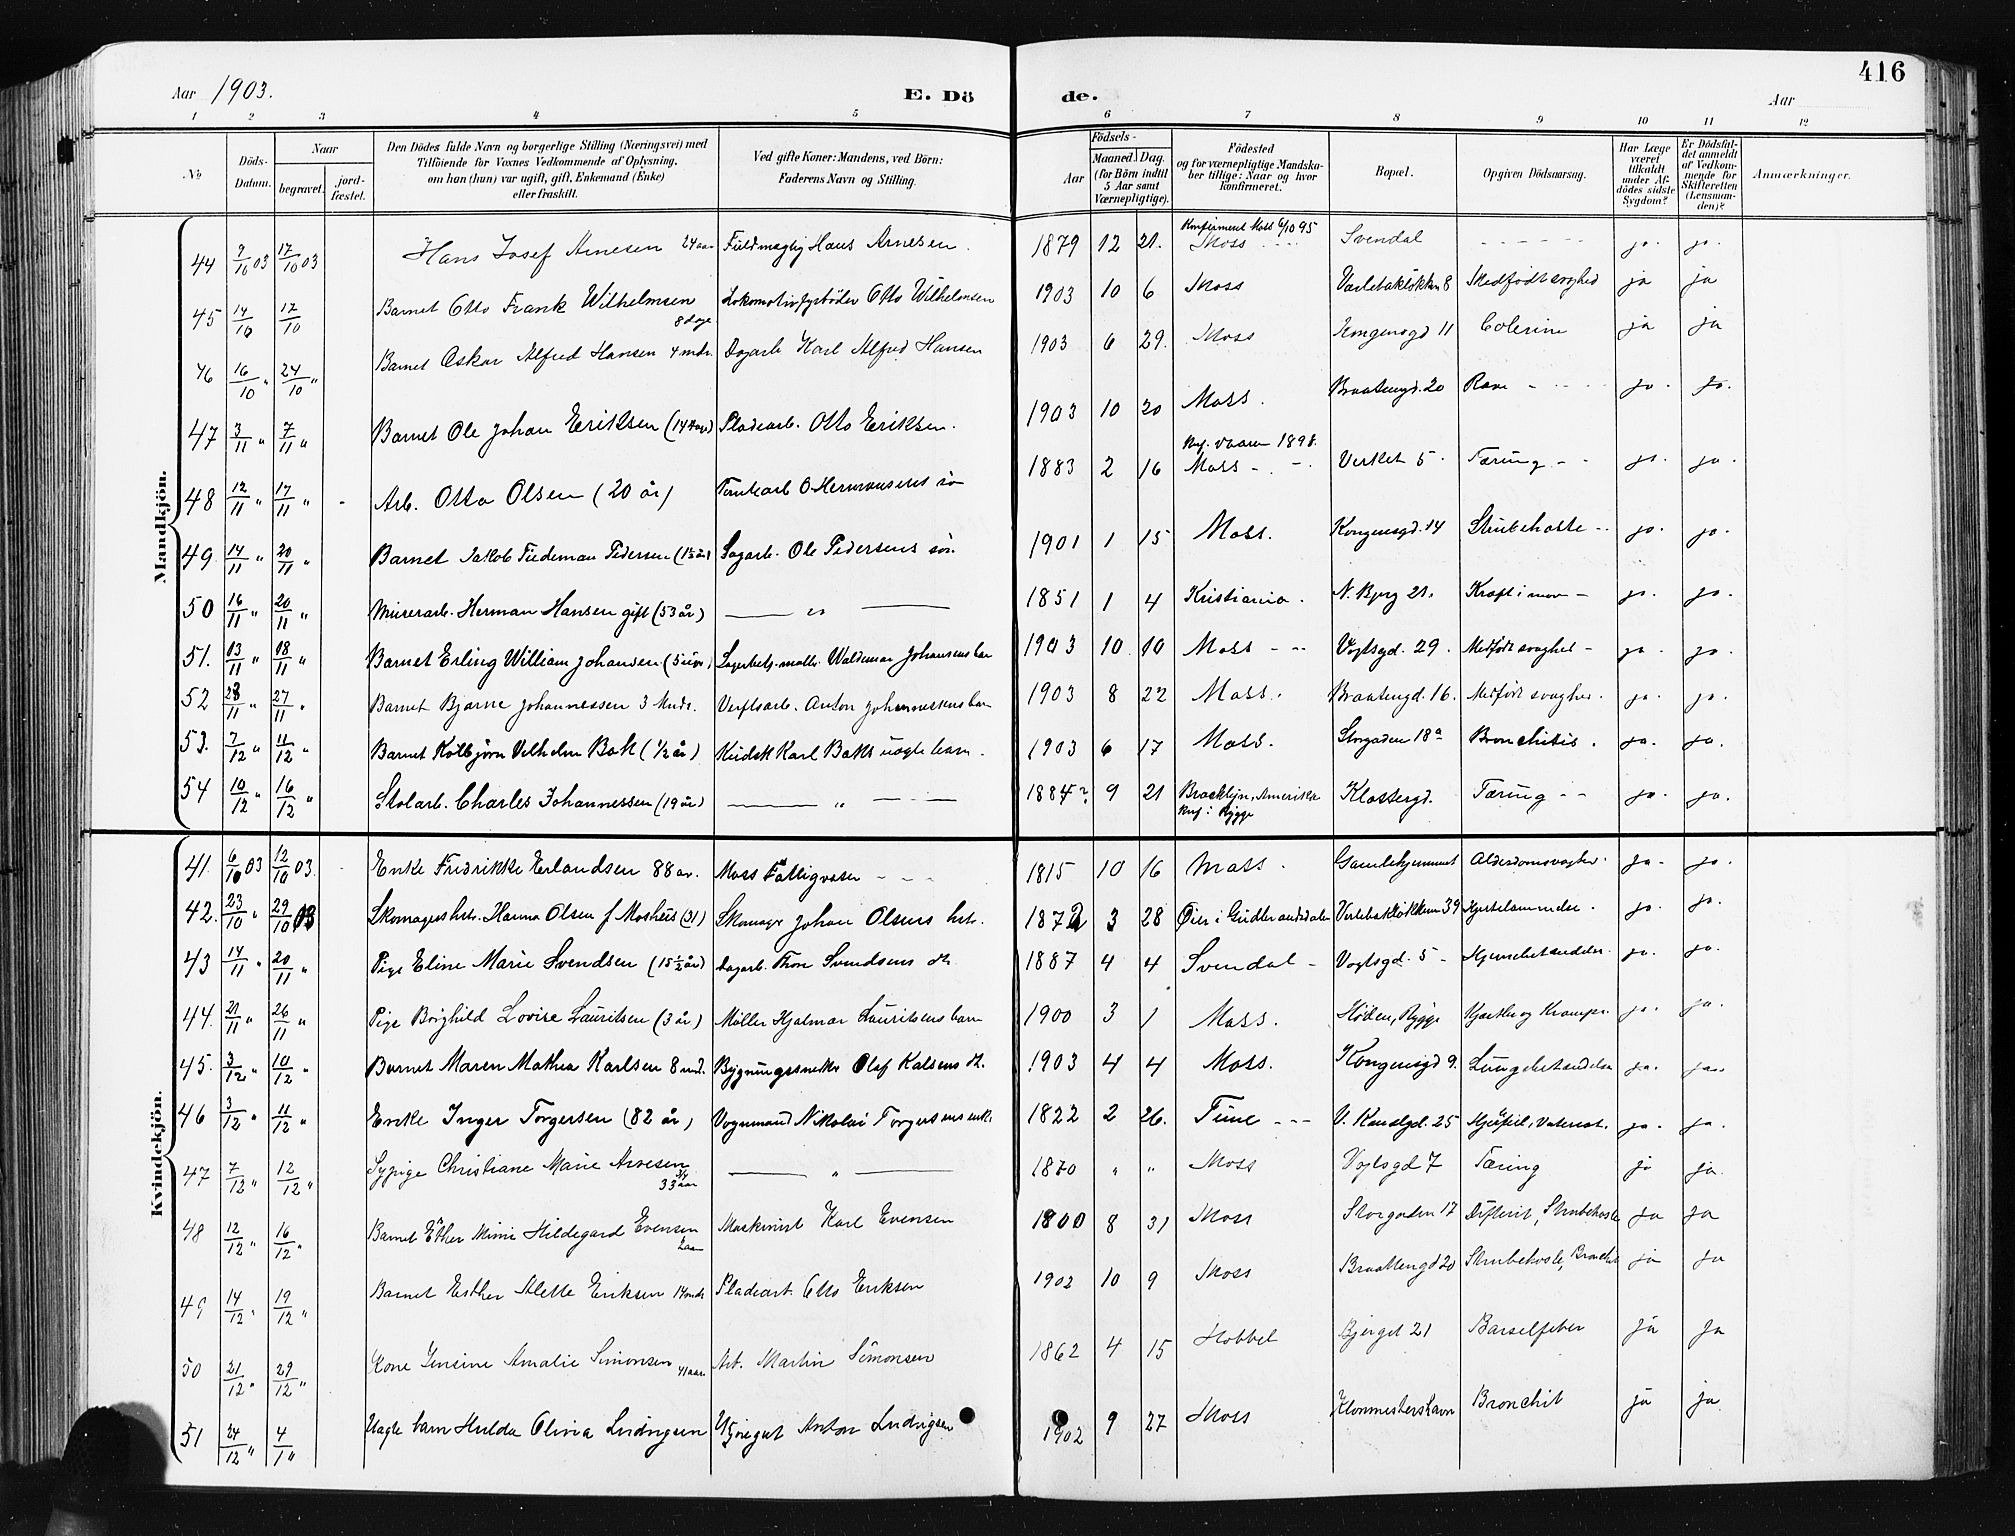 416
Aar 1903.
E. Dö de.
Aar
1 2 3 4 5 6 7 8 9 10 11 12
No
Döds-Datum.
Naar
begravet.
jord-fæstet.
Den Dödes fulde Navn og borgerlige Stilling (Næringsvei) med
Tilföiende for Voxnes Vedkommende af Oplysning,
om han (hun) var ugift, gift, Enkemand (Enke)
eller fraskilt.
Ved gifte Koner: Mandens, ved Börn:
Faderens Navn og Stilling.
Födsels-
Aar
Maaned. Dag.
(for Börn indtil
5 Aar samt
Værnepligtige).
Födested
og for værnepligtige Mandska-
ber tillige: Naar og hvor
konfirmeret.
Bopæl.
Opgiven Dödsaarsag.
Har Læge
været
tilkaldt
under Af-
dödes sidste
Sygdom?
Er Dödsfal-
det anmeldt
af Vedkom-
mende for
Skifteretten
(Lensman-
den)?
Anmærkninger.
Mandkjön.
44 9/10 03 17/10 03 Hans Josef Arnesen 24 aar Fuldmægtig Hans Arnesen. 1879 12 21. Konfirmeret Moss 6/10 95 Moss Svendal - - - - - - ja. ja.
45 14/10 17/10 Barnet Otto Frank Wilhelmsen 8 dage Lokomotivfyrbøder Otto Wilhelmsen 1903 10 6 Moss Værlebakløkken 8 Medfødt svaghed ja ja
46 16/10 " 24/10 " Barnet Oskar Alfred Hansen 4 mdr. Dagarb Karl Alfred Hansen 1903 6 29. Moss Kongensgd 11 Colerine ja ja
47 3/11 " 7/11 " Barnet Ole Johan Eriksen (14 dage) Pladearb. Otto Eriksen. 1903 10 20 Moss. Braatengd. 20 ja. ja.
48 12/11 " 17/11 " - Arb. Otto Olsen (20 år) 1883 2 16 Knf. vaaren 1898. Moss - Verket 5 Tæring - - ja. ja.
49 14/11 " 20/11 " Barnet Jakob Tiedeman Pedersen (1½ år) Sagarb. Ole Pedersens søn 1901 1 15 Moss. Kongensgd. 14 Strubehoste - - ja. ja.
50 16/11 " 20/11 " Murerarb. Herman Hansen gift (53 år) 1851 1 4 Kristiania. N. Bjerg 21. Kræft i maven - ja. ja.
51. 13/11 " 18/11 " Barnet Erling William Johansen Waldemar Johansens barn 1903 10 10 Moss - - Vogtsgd. 29. Medfødt svaghed - ja. ja.
52 23/11 " 27/11 " Barnet Bjarne Johannessen 3 Mndr. Verftsarb. Anton Johannessens barn 1903 8 22 Moss. Braatengd. 16. Medfødt svaghed. ja. ja.
53. 7/12 " 11/12 " Barnet Kolbjørn Vilhelm Bak (½ år) Kudsk Karl Baks uægte barn. 1903 6 17 Moss. Storgaden 18a Bronchitis. ja. ja.
54 10/12 " 16/12 " Stolarb. Charles Johannessen (19 år) " 1884? 9 21 Brooklyn, Amerika knf. i Rygge Klostergd. Tæring - - ja. ja.
Kvindekjön.
41. 6/10 03 12/10 03. Enke Fredrikke Erlandsen 88 år. Moss Fattigvæsen - - - 1815 10 16 Moss. Gamlehjemmet Alderdomssvaghed. ja. ja.
42. 23/10 " 29/10 03 Skomagershst. Hanna Olsen f. Moshus (31) Skomager Johan Olsens hst. 1872 3 28 Øier i Gudbrandsdalen Værlebakløkken 39 Hjertelammelse. ja. ja.
43 14/11 " 20/11 " Pige Eline Marie Svendsen (15½ år) Dagarb. Thom Svendsens dt. 1887 4 4 Svendal - Vogtsgd. 5 - Hjernebetændelse. ja. ja.
44. 21/11 " 26/11 " Pige Borghild Lovise Lauritsen (3 år) Møller Hjalmar Lauritsens barn 1900 3 1 Moss. Høiden, Rygge ja. ja.
45. 3/12 " 10/12 " Barnet Maren Mathea Karlsen 8 md. Bygningssnekker Olaf Kalsens dt. 1903 4 4 Moss. Kongensgd 9. Lungebetændelse ja. ja.
46 3/12 " 11/12 " Enke Inger Torgersen (82 år) Vognmand Nikolai Torgersens enke 1822 2 26. Tune - - - V. Kanalgd. 25 Hjertefeil, Vatersot. ja. ja.
47 7/12 " 12/12 " Sypige Christiane Marie Arnesen 33 ¾ aar " 1870 " " Moss Vogtsgd 7 Tæring ja ja.
48 12/12 " 16/12 " Barnet Esther Mimi Hildegard Evensen Maskinist Karl Evensen 1900 8 31 Moss Storgaden 17 Difterit, Strubehoste ja ja
49 14/12 " 19/12 " Barnet Esther Alette Eriksen 14 mdr Pladearb. Otto Eriksen 1902 10 9 Moss Braatengd 20 Strubehoste, Bronchit ja ja
50 21/12 " 29/12 " Kone Jensine Amalie Simonsen 41 aar Arb. Martin Simonsen 1862 4 15 Hobbel Bjerget 21 Barselfeber ja ja
51 24/12 " 4/1 " Uægte barn Hulda Olivia Ludvigsen Anton Ludvigsen 1902 9 27 Moss Bronchit ja ja